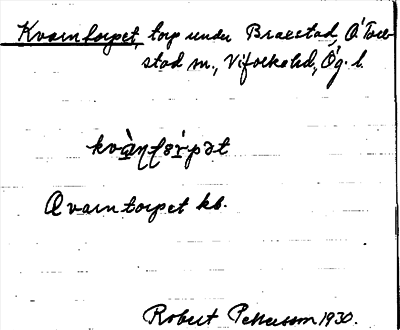 Kvarntorpet, torp under Braestad, Ö Tor-
stad sn., Vifolka hd, Ög. l.
kvà̱ɳʈɵr̀pət
Qvarntorpet kb.
Robert Pettersson 1930.